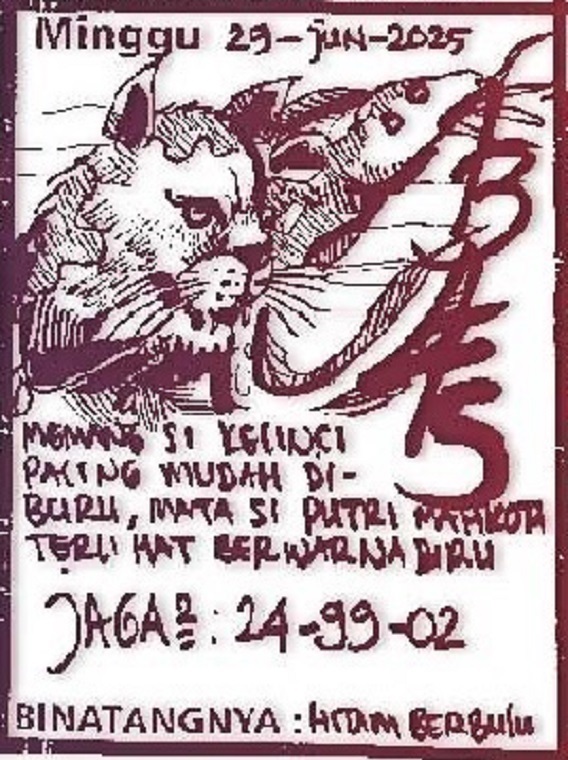 Minggu 29-jun-2025
MEMANG SI KELINCI
PALING MUDAH DI-
BURU, MATA SI PUTRI MAHKOTA
TERLIHAT BERWARNA BIRU
JAGA2 : 24-99-02
BINATANGNYA : HITAM BERBULU